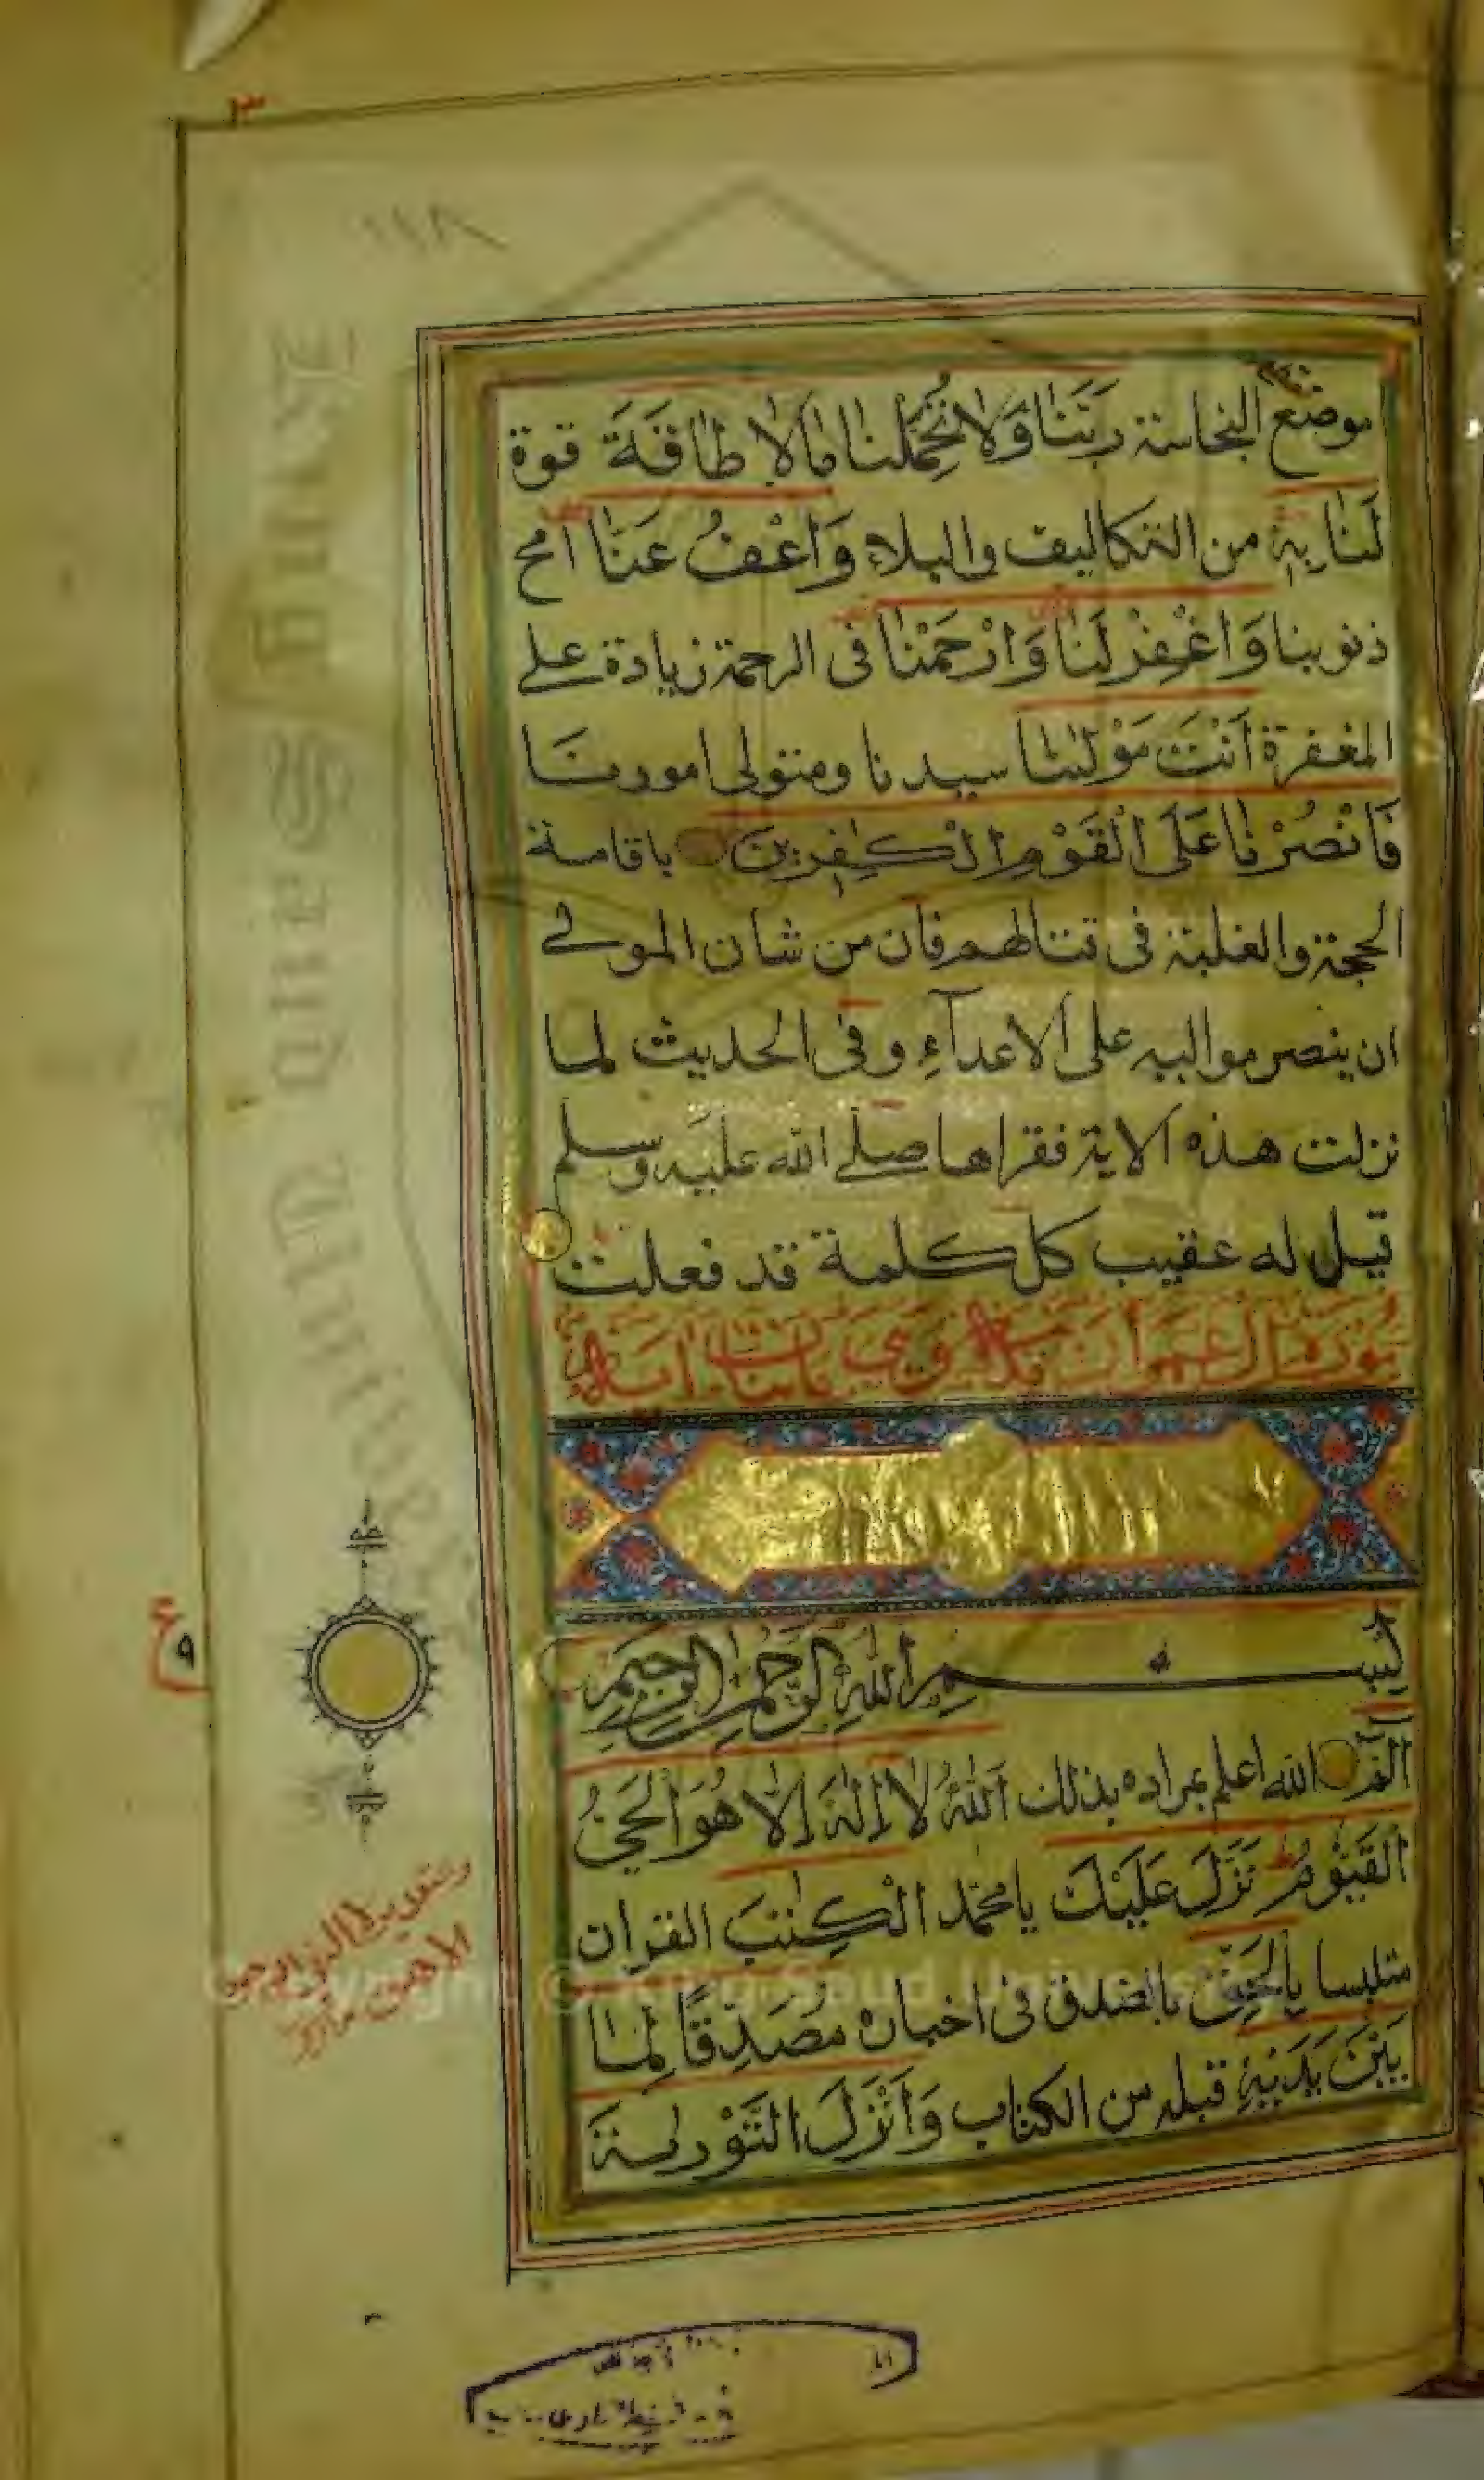 موضع النجاسة رَبَّنَا وَلَا تُحَمِّلْنَا مَا لَا طَاقَةَ قوة
لَنَا بِهٖ من التكاليف والبلاء وَاعْفُ عَنَّا امح
ذنوبنا وَاغْفِرْ لَنَا وَارْحَمْنَا فى الرحمة زيادة على
المغفرة اَنْتَ مَوْلٰىنَا سيدنا ومتولى امورنا
فَانْصُرْنَا عَلَى الْقَوْمِ الْكٰفِرِيْنَ باقامة
الحجة والغلبة فى قتالهم فان من شان المولى
ان ينصر مواليه على الاعداۤء وفى الحديث لما
نزلت هذه الاية فقراها صلى الله عليه وسلم
قيل له عقيب كل كلمة قد فعلت
سورة ال عمران مدنية وهى مائتا اية
بِسْمِ اللّٰهِ الرَّحْمٰنِ الرَّحِيْمِ
الٓمّٓ الله اعلم بمراده بذلك اَللّٰهُ لَاۤ اِلٰهَ اِلَّا هُوَ الْحَىُّ
الْقَيُّوْمُ نَزَّلَ عَلَيْكَ يا محمد الْكِتٰبَ القران
متلبسا بِالْحَقِّ بالصدق فى اخباره مُصَدِّقًا لِّمَا
بَيْنَ يَدَيْهِ قبله من الكتاب وَاَنْزَلَ التَّوْرٰىةَ
٣
ع
٩
King Saud University